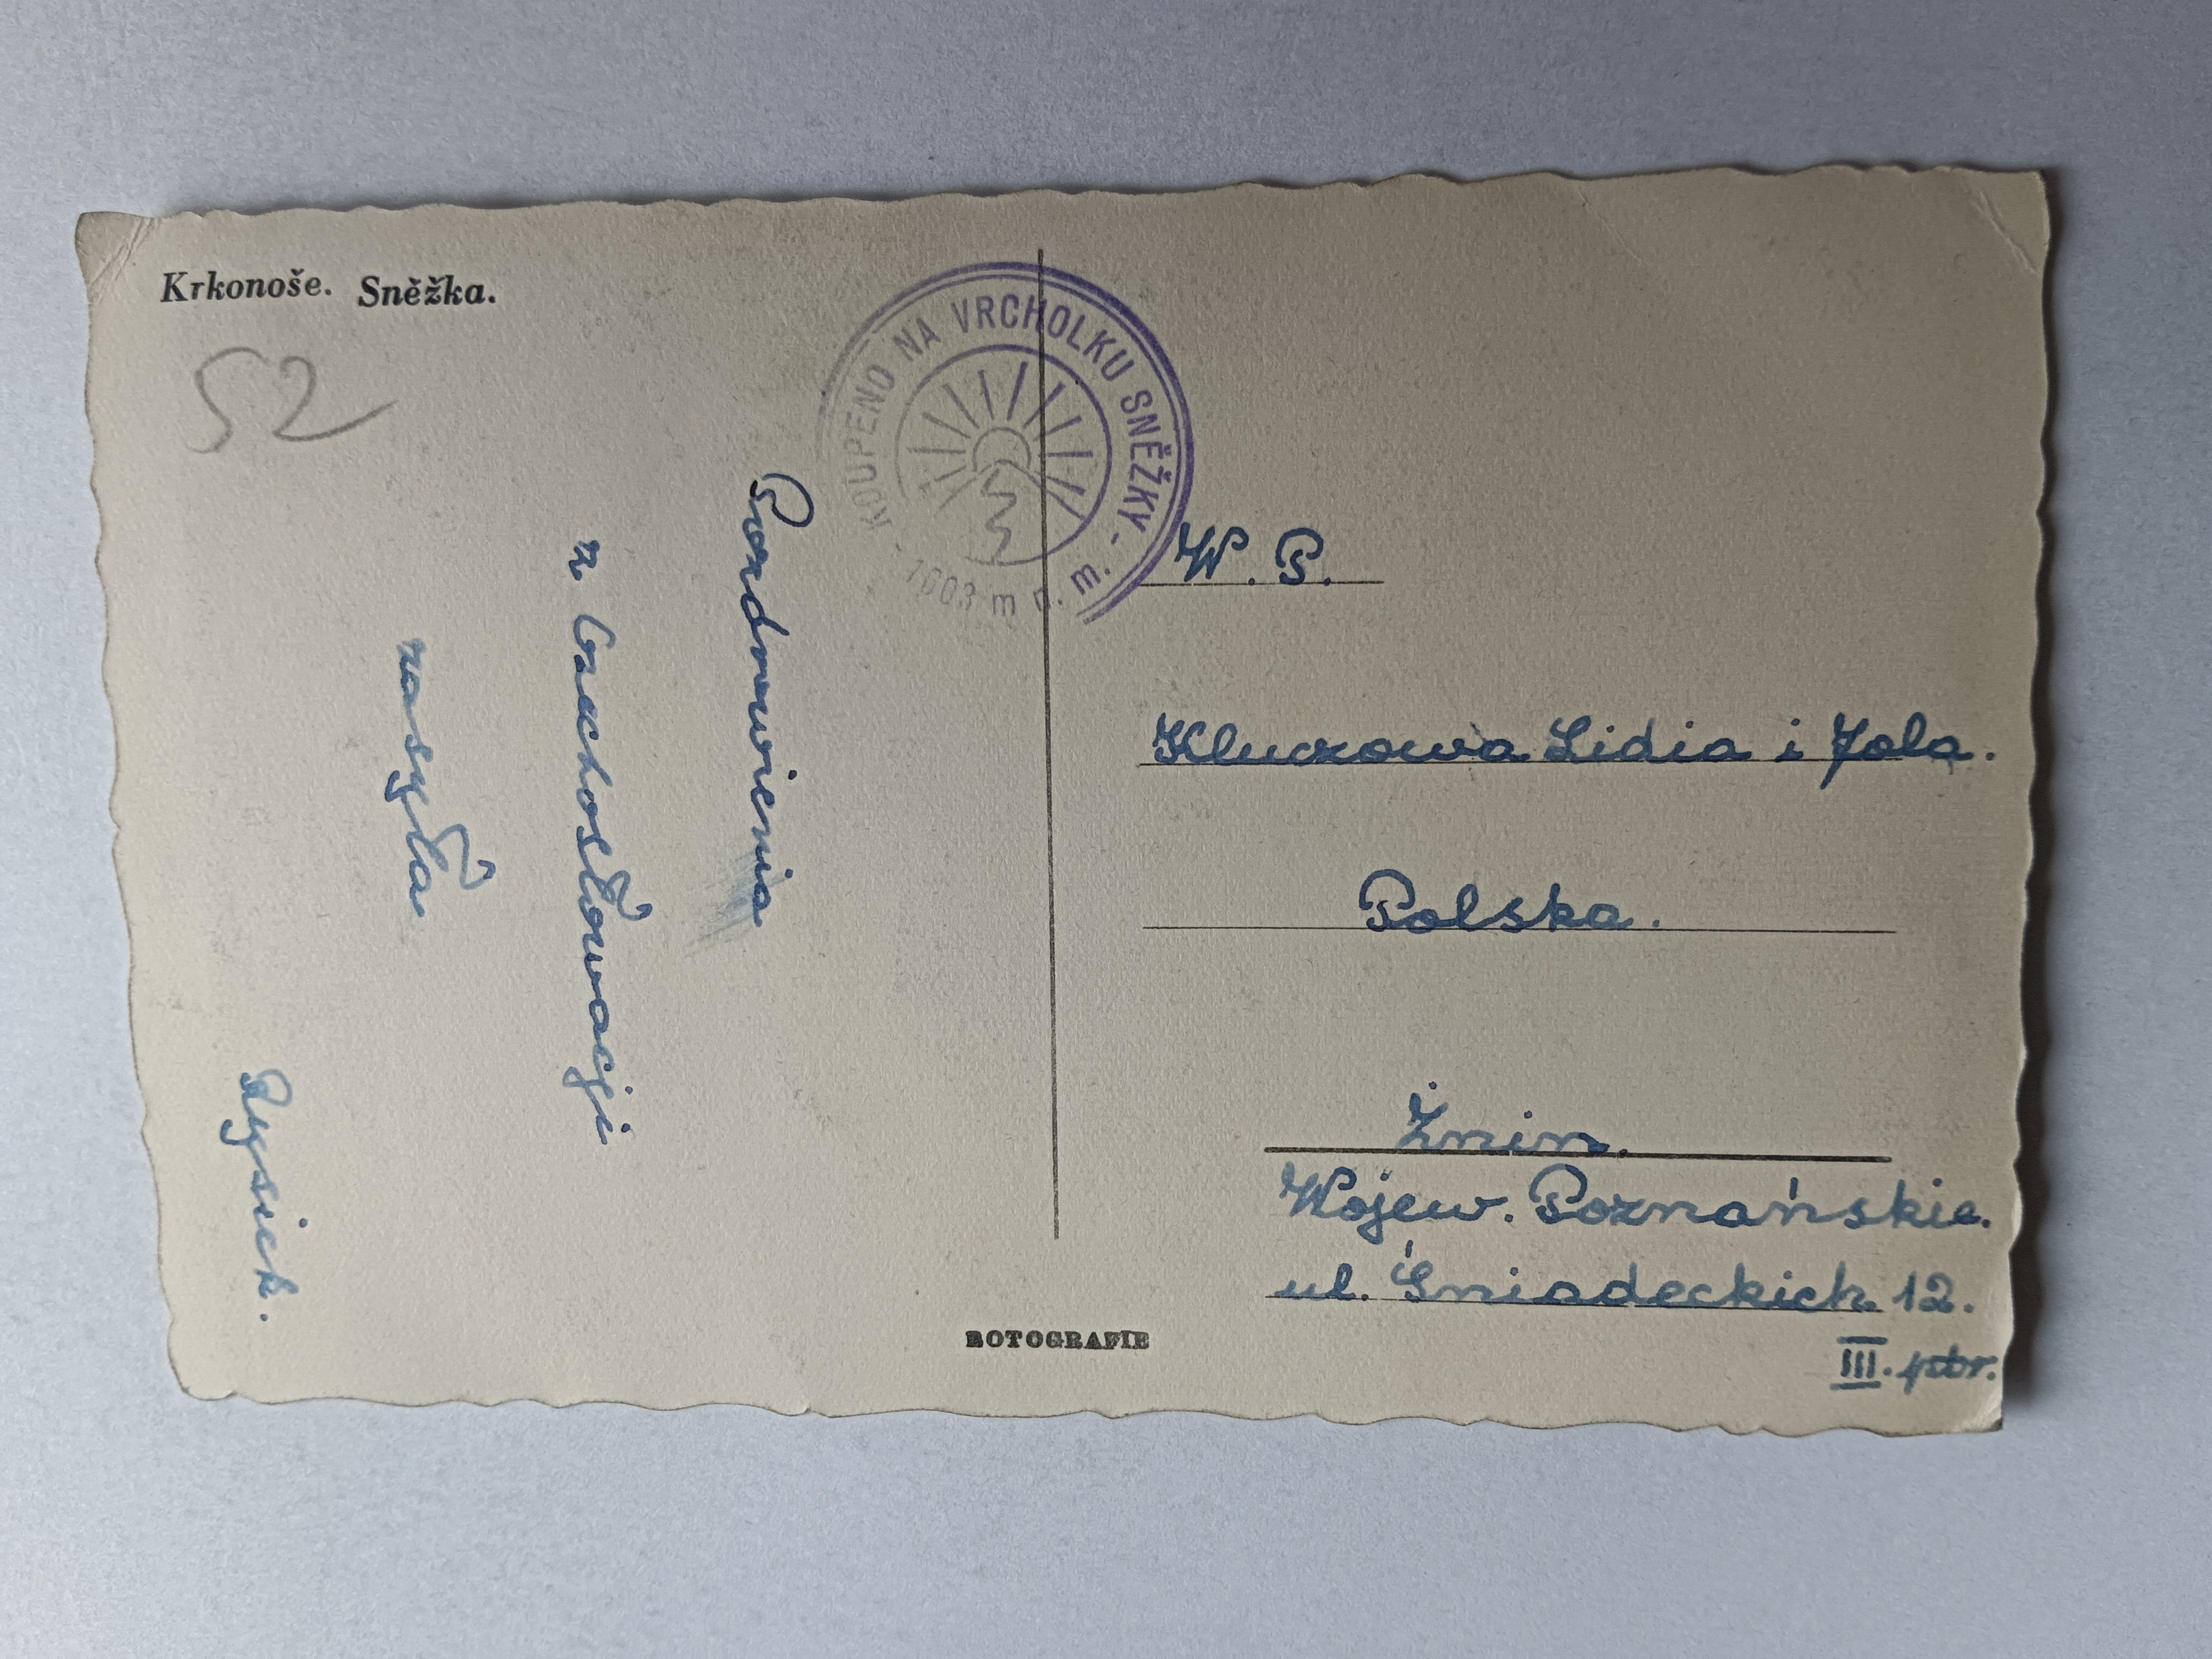 Krkonoše. Sněžka.
52
KOUPENO NA VRCHOLKU SNĚŽKY -
- 1603 m n. m.
Pozdrowienia
z Czechosłowacji
zasyła
Rysiek.
W. P.
Kluczowa Lidia i Jola.
Polska.
Żnin.
Wojew. Poznańskie.
ul. Śniadeckich 12.
III. ptr.
ROTOGRAFIE